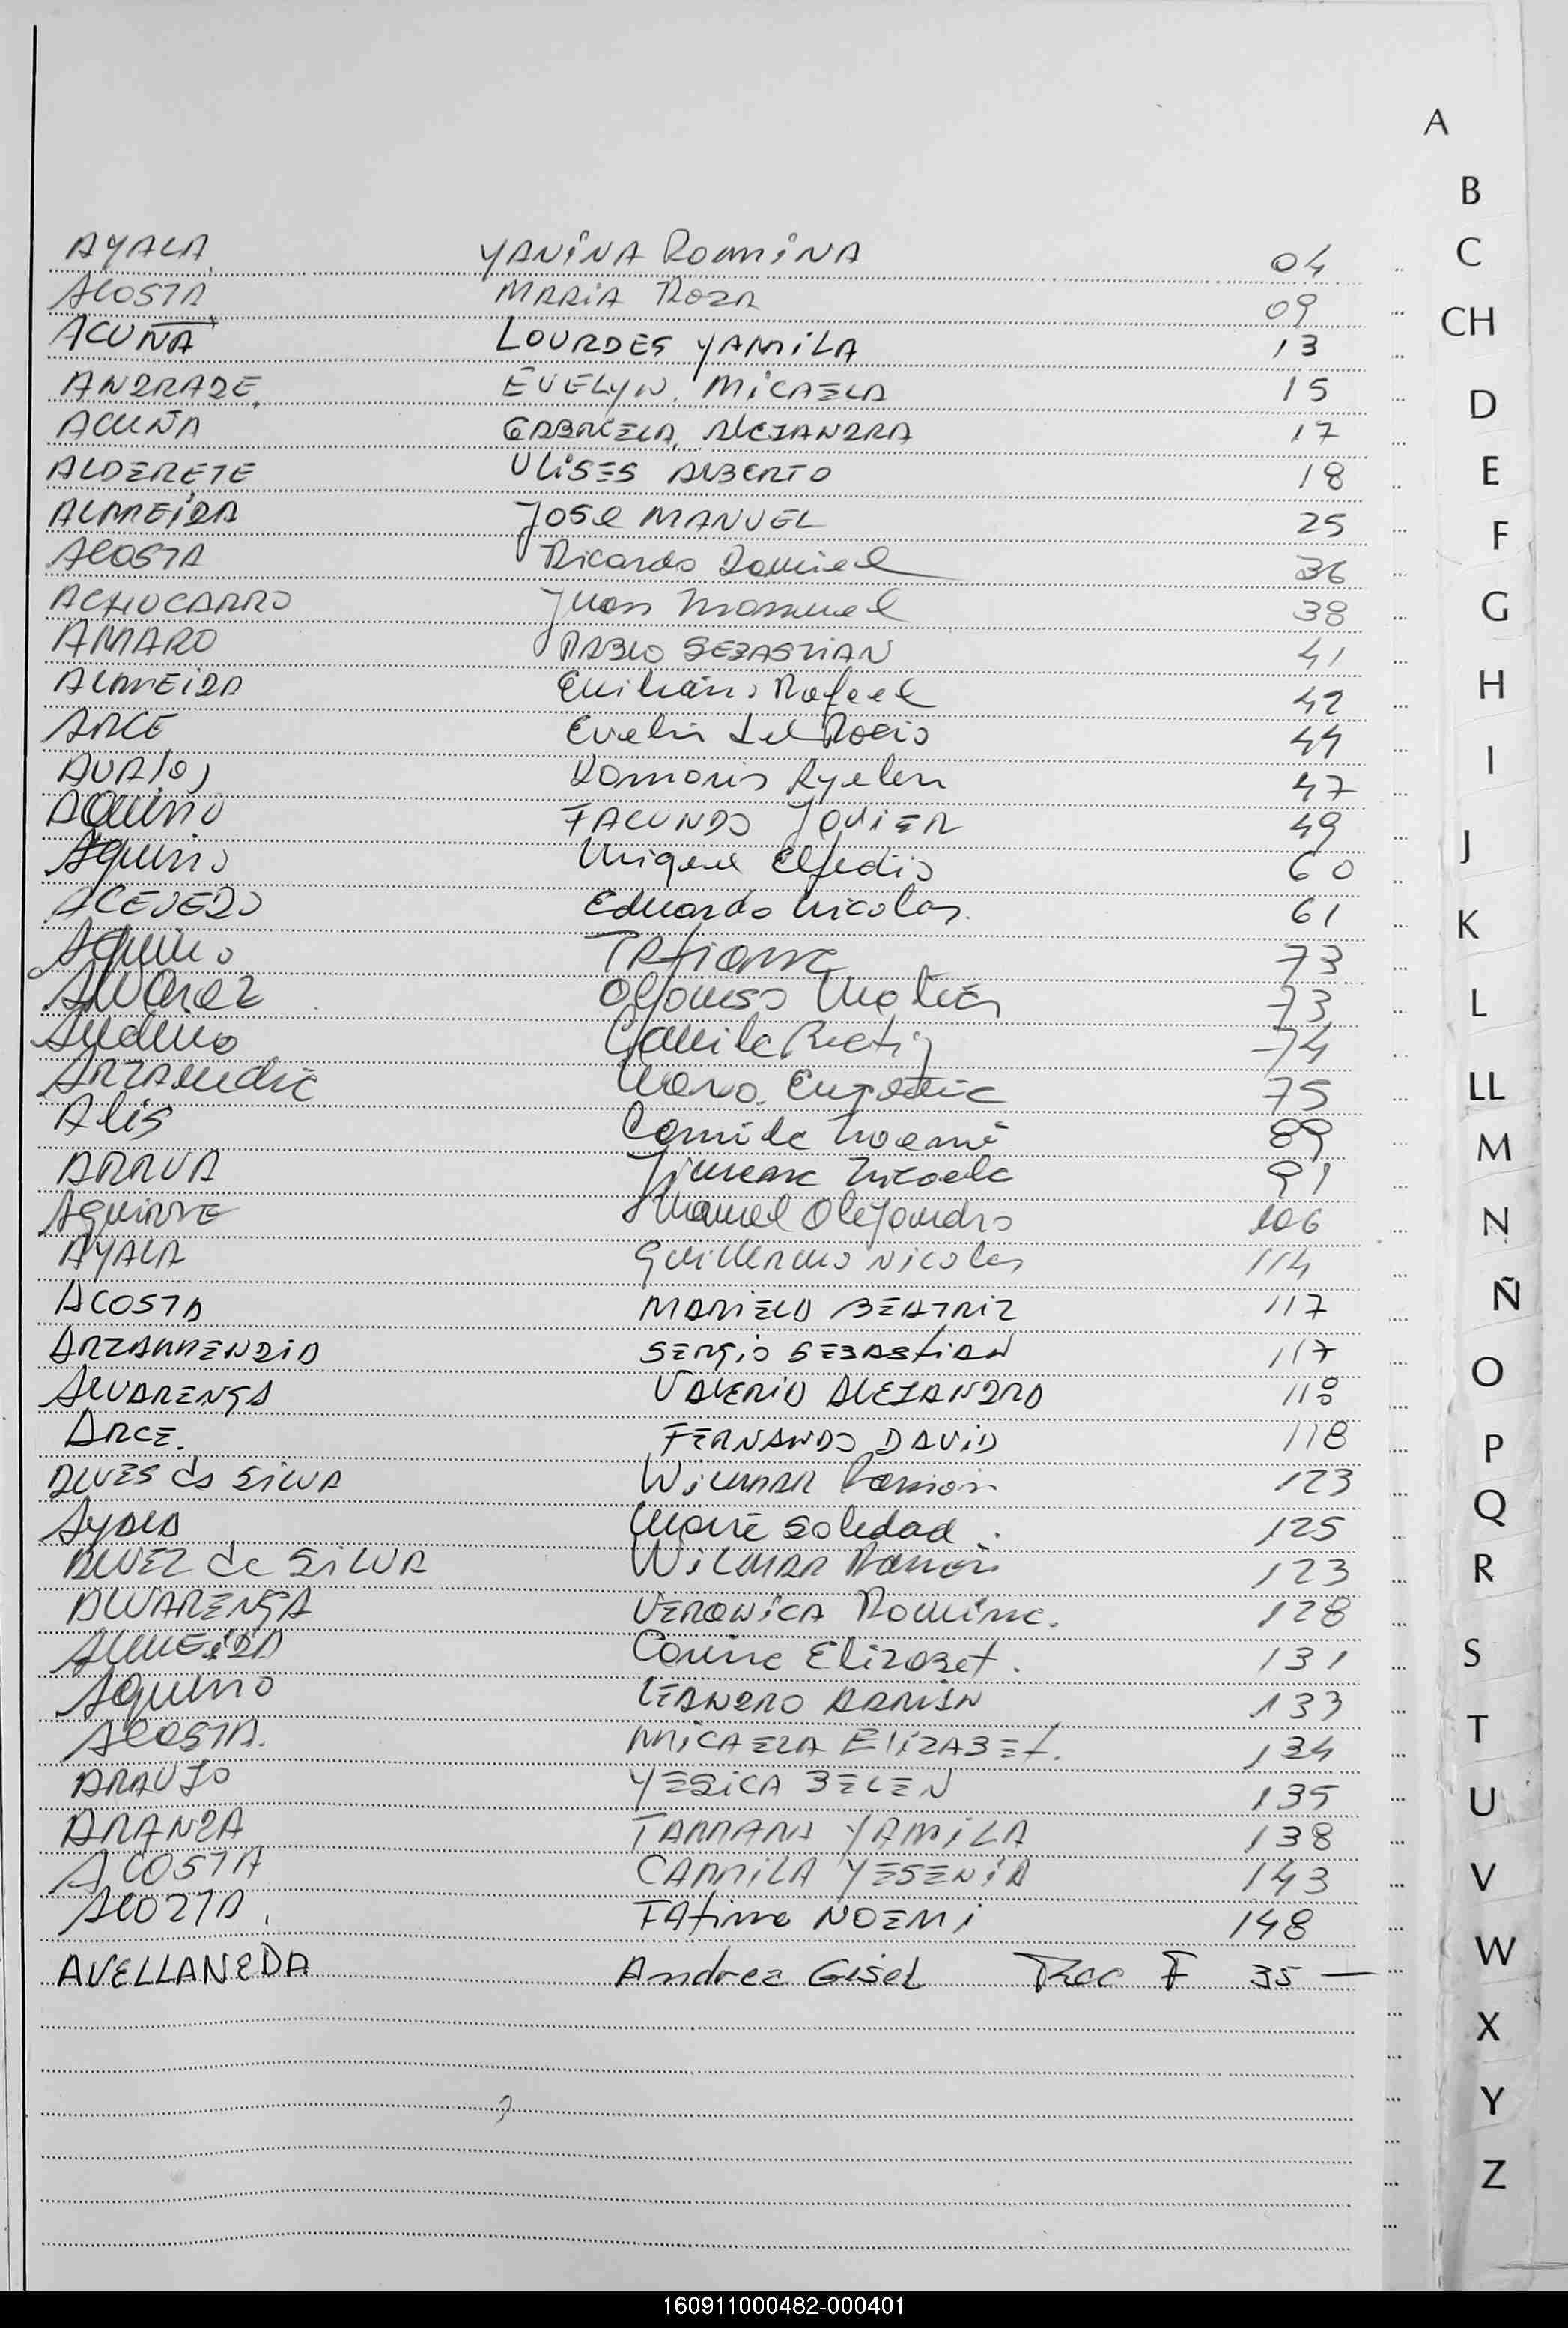 A
B
C
CH
D
E
F
G
H
I
J
K
L
LL
M
N
Ñ
O
P
Q
R
S
T
U
V
W
X
Y
Z
AYALA YANINA ROMINA 04
ACOSTA MARIA ROSA 09
ACUÑA LOURDES YAMILA 13
ANDRADE EVELYN MICAELA 15
ACUÑA GABRIELA ALEJANDRA 17
ALDERETE ULISES ALBERTO 18
ALMEIDA JOSE MANUEL 25
ACOSTA Ricardo Daniel 36
ACHUCARRO Juan Manuel 38
AMARO PABLO SEBASTIAN 41
ALMEIDA Emiliano Rafael 42
ARCE Evelin del Rocio 44
AVALOS Damaris Ayelen 47
AQUINO FACUNDO JAVIER 49
Aquino Miguel Elpidio 60
ACEVEDO Eduardo Nicolas 61
Aquino TATIANA 73
Alvarez Alfonso Matias 73
Andino Camila 74
Arzamendia Maria Eugenia 75
Alis Camila Noemi 89
ARRUA Jimena Micaela 91
AGUIRRE Manuel Alejandro 106
AYALA Guillermo Nicolas 114
ACOSTA MARIELA BEATRIZ 117
ARZAMENDIA SERGIO SEBASTIAN 117
ALVARENGA VALERIA ALEJANDRA 118
ARCE. FERNANDO DAVID 118
ALVES da SILVA WILMAR Ramon 123
Ayala Maria Soledad. 125
ALVEZ da SILVA WILMAR Ramon 123
ALVARENGA VERONICA Romina. 128
ALMEIDA Carina Elizabet. 131
Aquino LEANDRO 133
ACOSTA. MICAELA ELIZABEt. 134
ARAUJO YESICA BELEN 135
ARANDA TAMARA YAMILA 138
ACOSTA CAMILA YESENIA 143
ACOSTA. FAtima NOEMI 148
AVELLANEDA Andrea Gisel Rec F 35 —
160911000482-000401